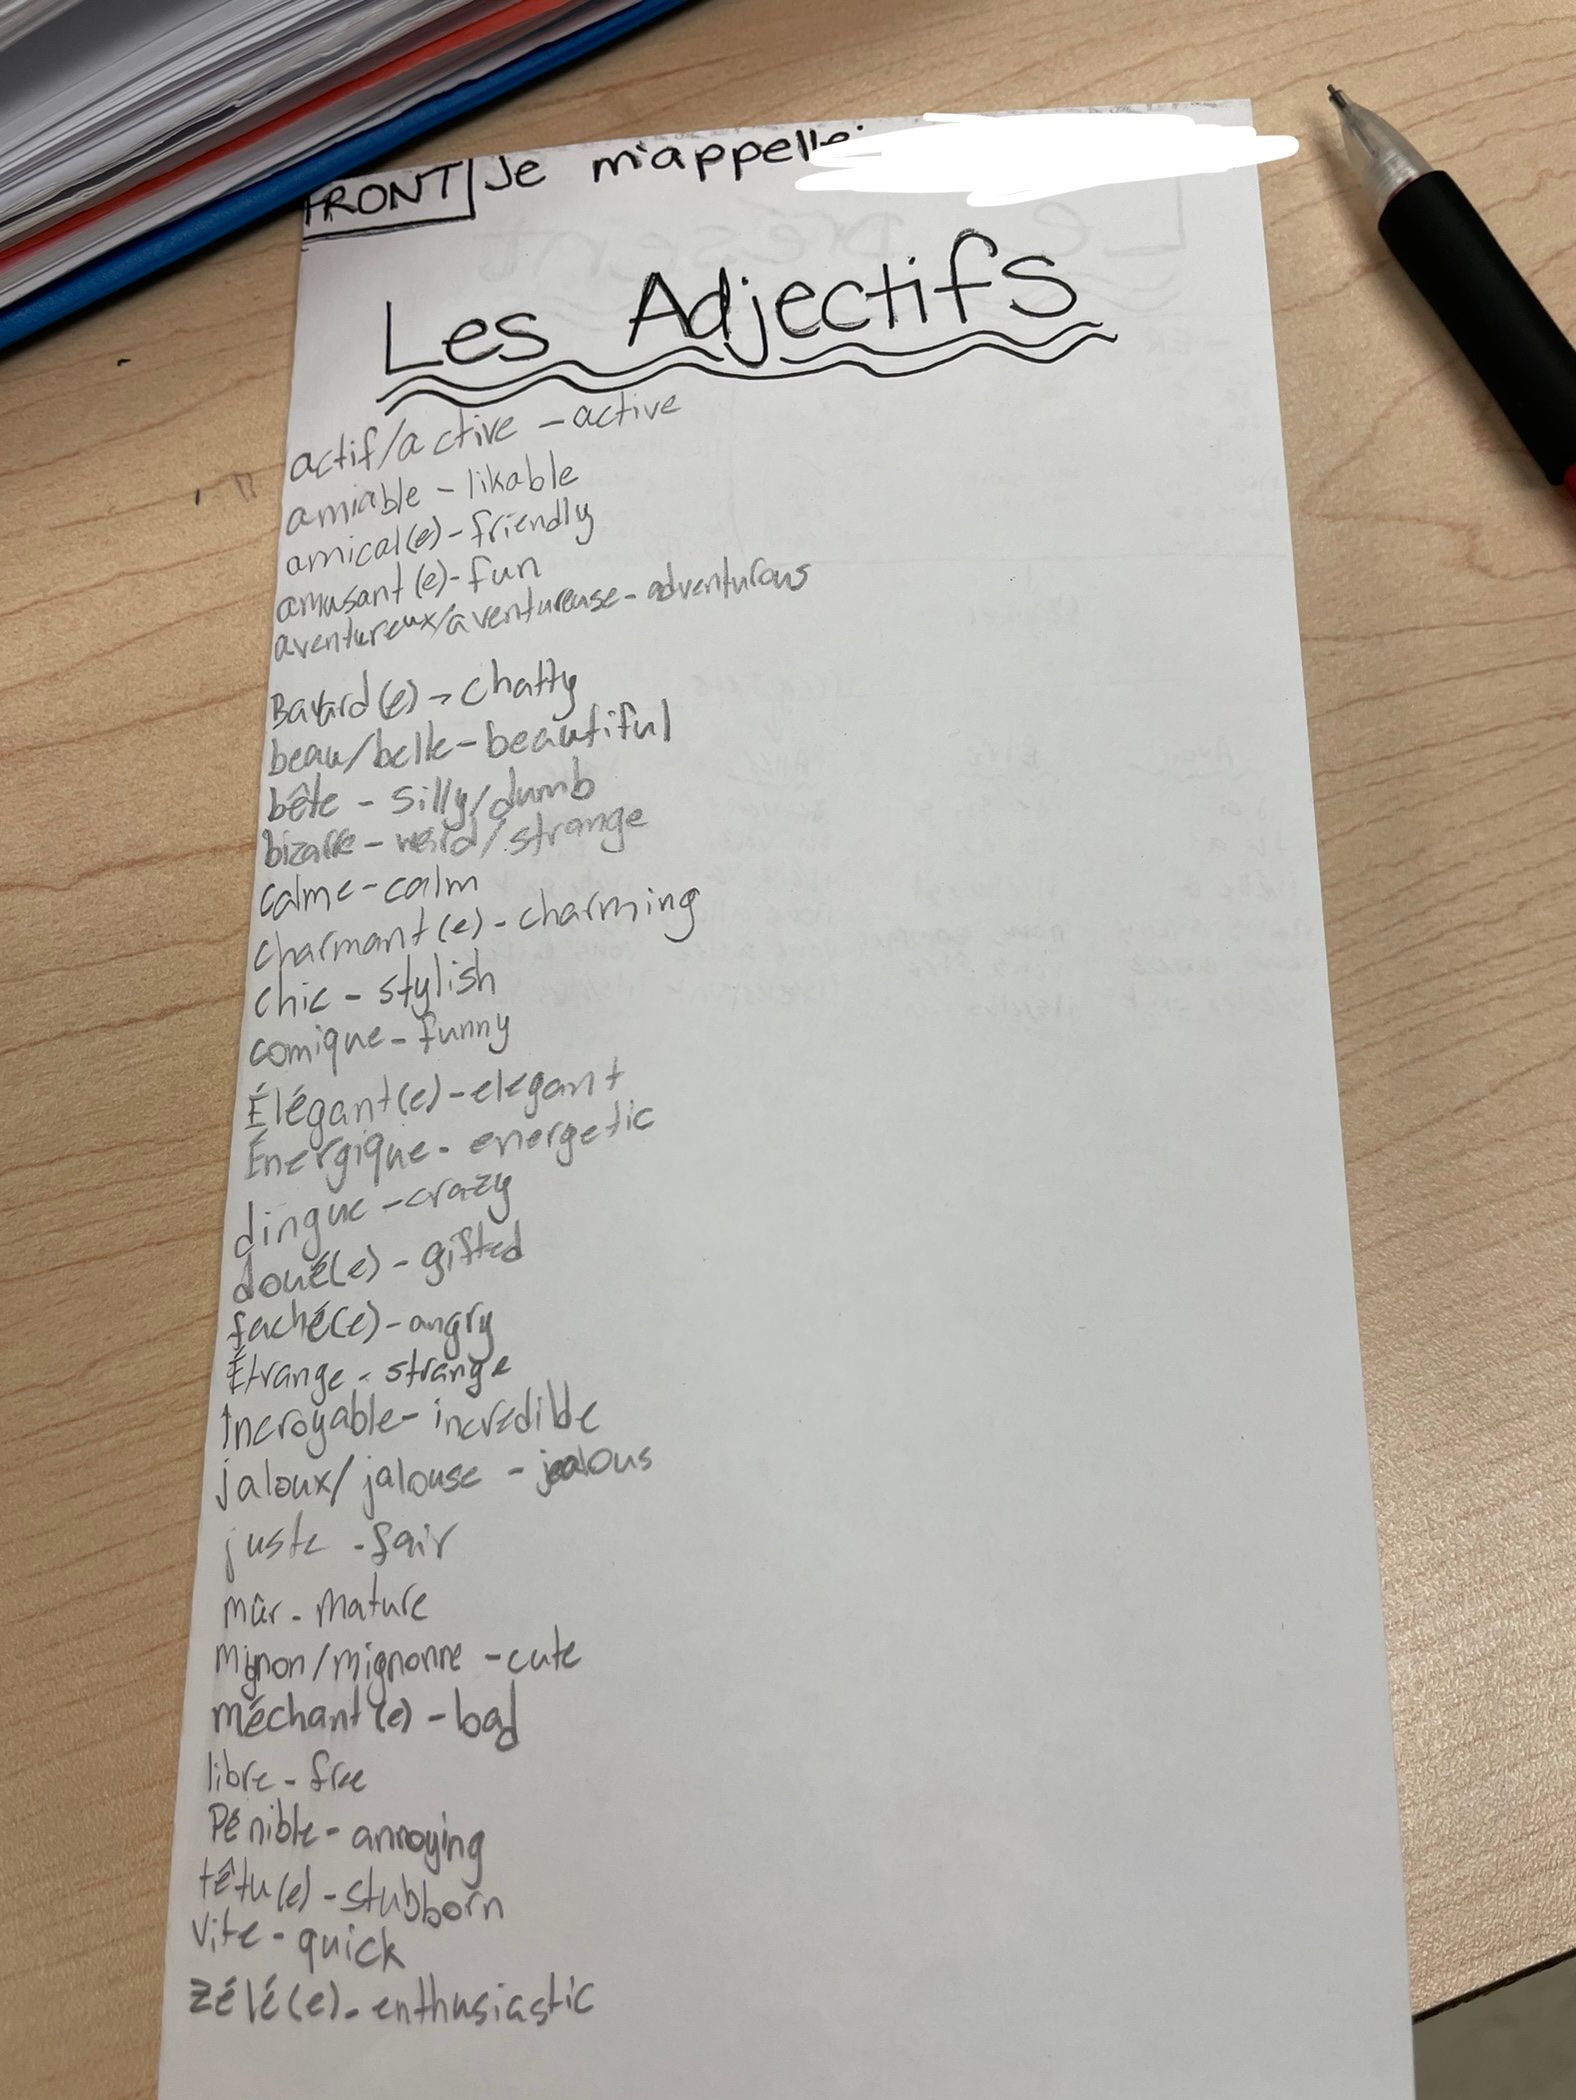 FRONT Je m'appelle
Les Adjectifs
actif/active - active
amiable - likable
amical(e) - friendly
amusant(e) - fun
aventureux/aventureuse - adventurous
Bavard(e) - chatty
beau/belle - beautiful
bête - silly/dumb
bizarre - weird/strange
calme - calm
charmant(e) - charming
chic - stylish
comique - funny
Élégant(e) - elegant
Énergique - energetic
dingue - crazy
doué(e) - gifted
faché(e) - angry
Étrange - strange
Incroyable - incredible
jaloux/jalouse - jealous
juste - fair
mûr - mature
mignon/mignonne - cute
méchant(e) - bad
libre - free
Pénible - annoying
têtu(e) - stubborn
Vite - quick
zélé(e) - enthusiastic